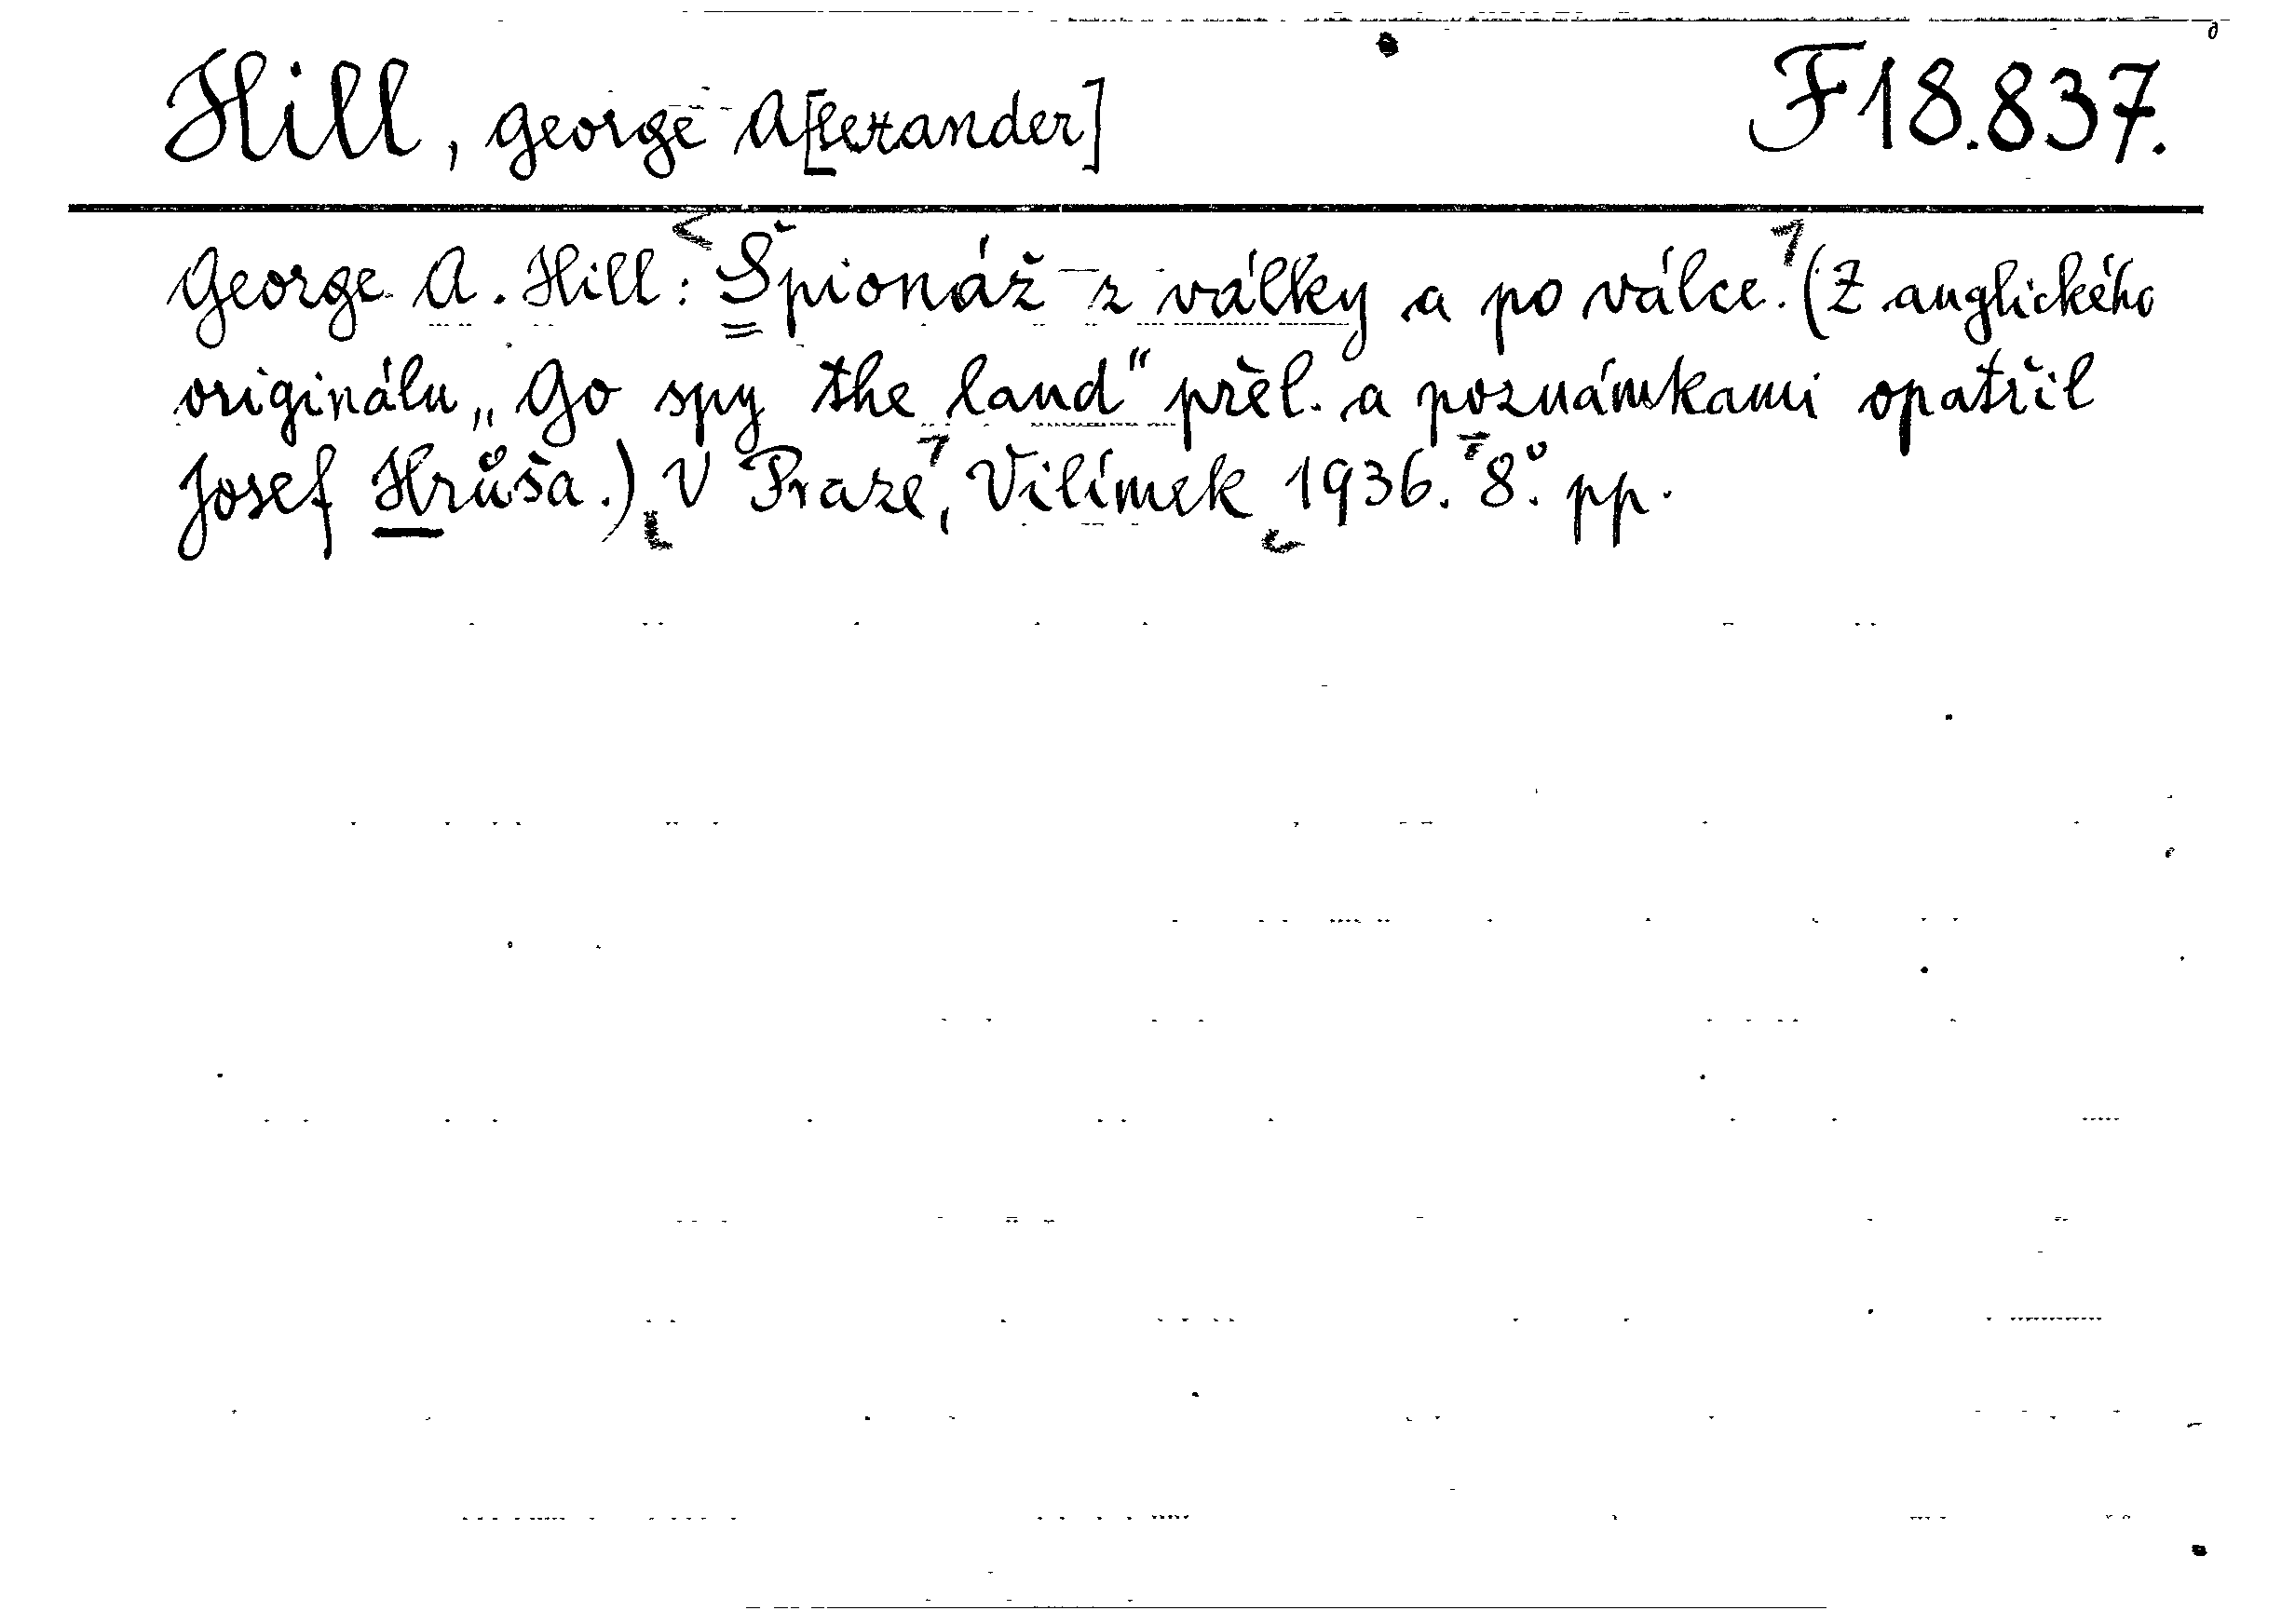 Hill, George A[lexander] F18.837.
George A. Hill: Špionáž z války a po válce. (Z anglického
originálu „Go spy the land“ přel. a poznámkami opatřil
Josef Hrůša.) V Praze, Vilímek 1936. 8°. pp.